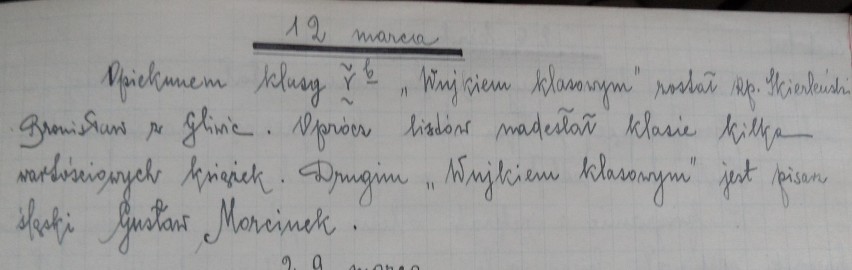 12 marca
Opiekunem klasy V b „Wujkiem klasowym" został ob. Skierleński
Bronisław z Gliwic. Oprócz listów nadesłał klasie kilka
wartościowych książek. Drugim „Wujkiem klasowym" jest pisarz
śląski Gustaw Morcinek.
29 marca